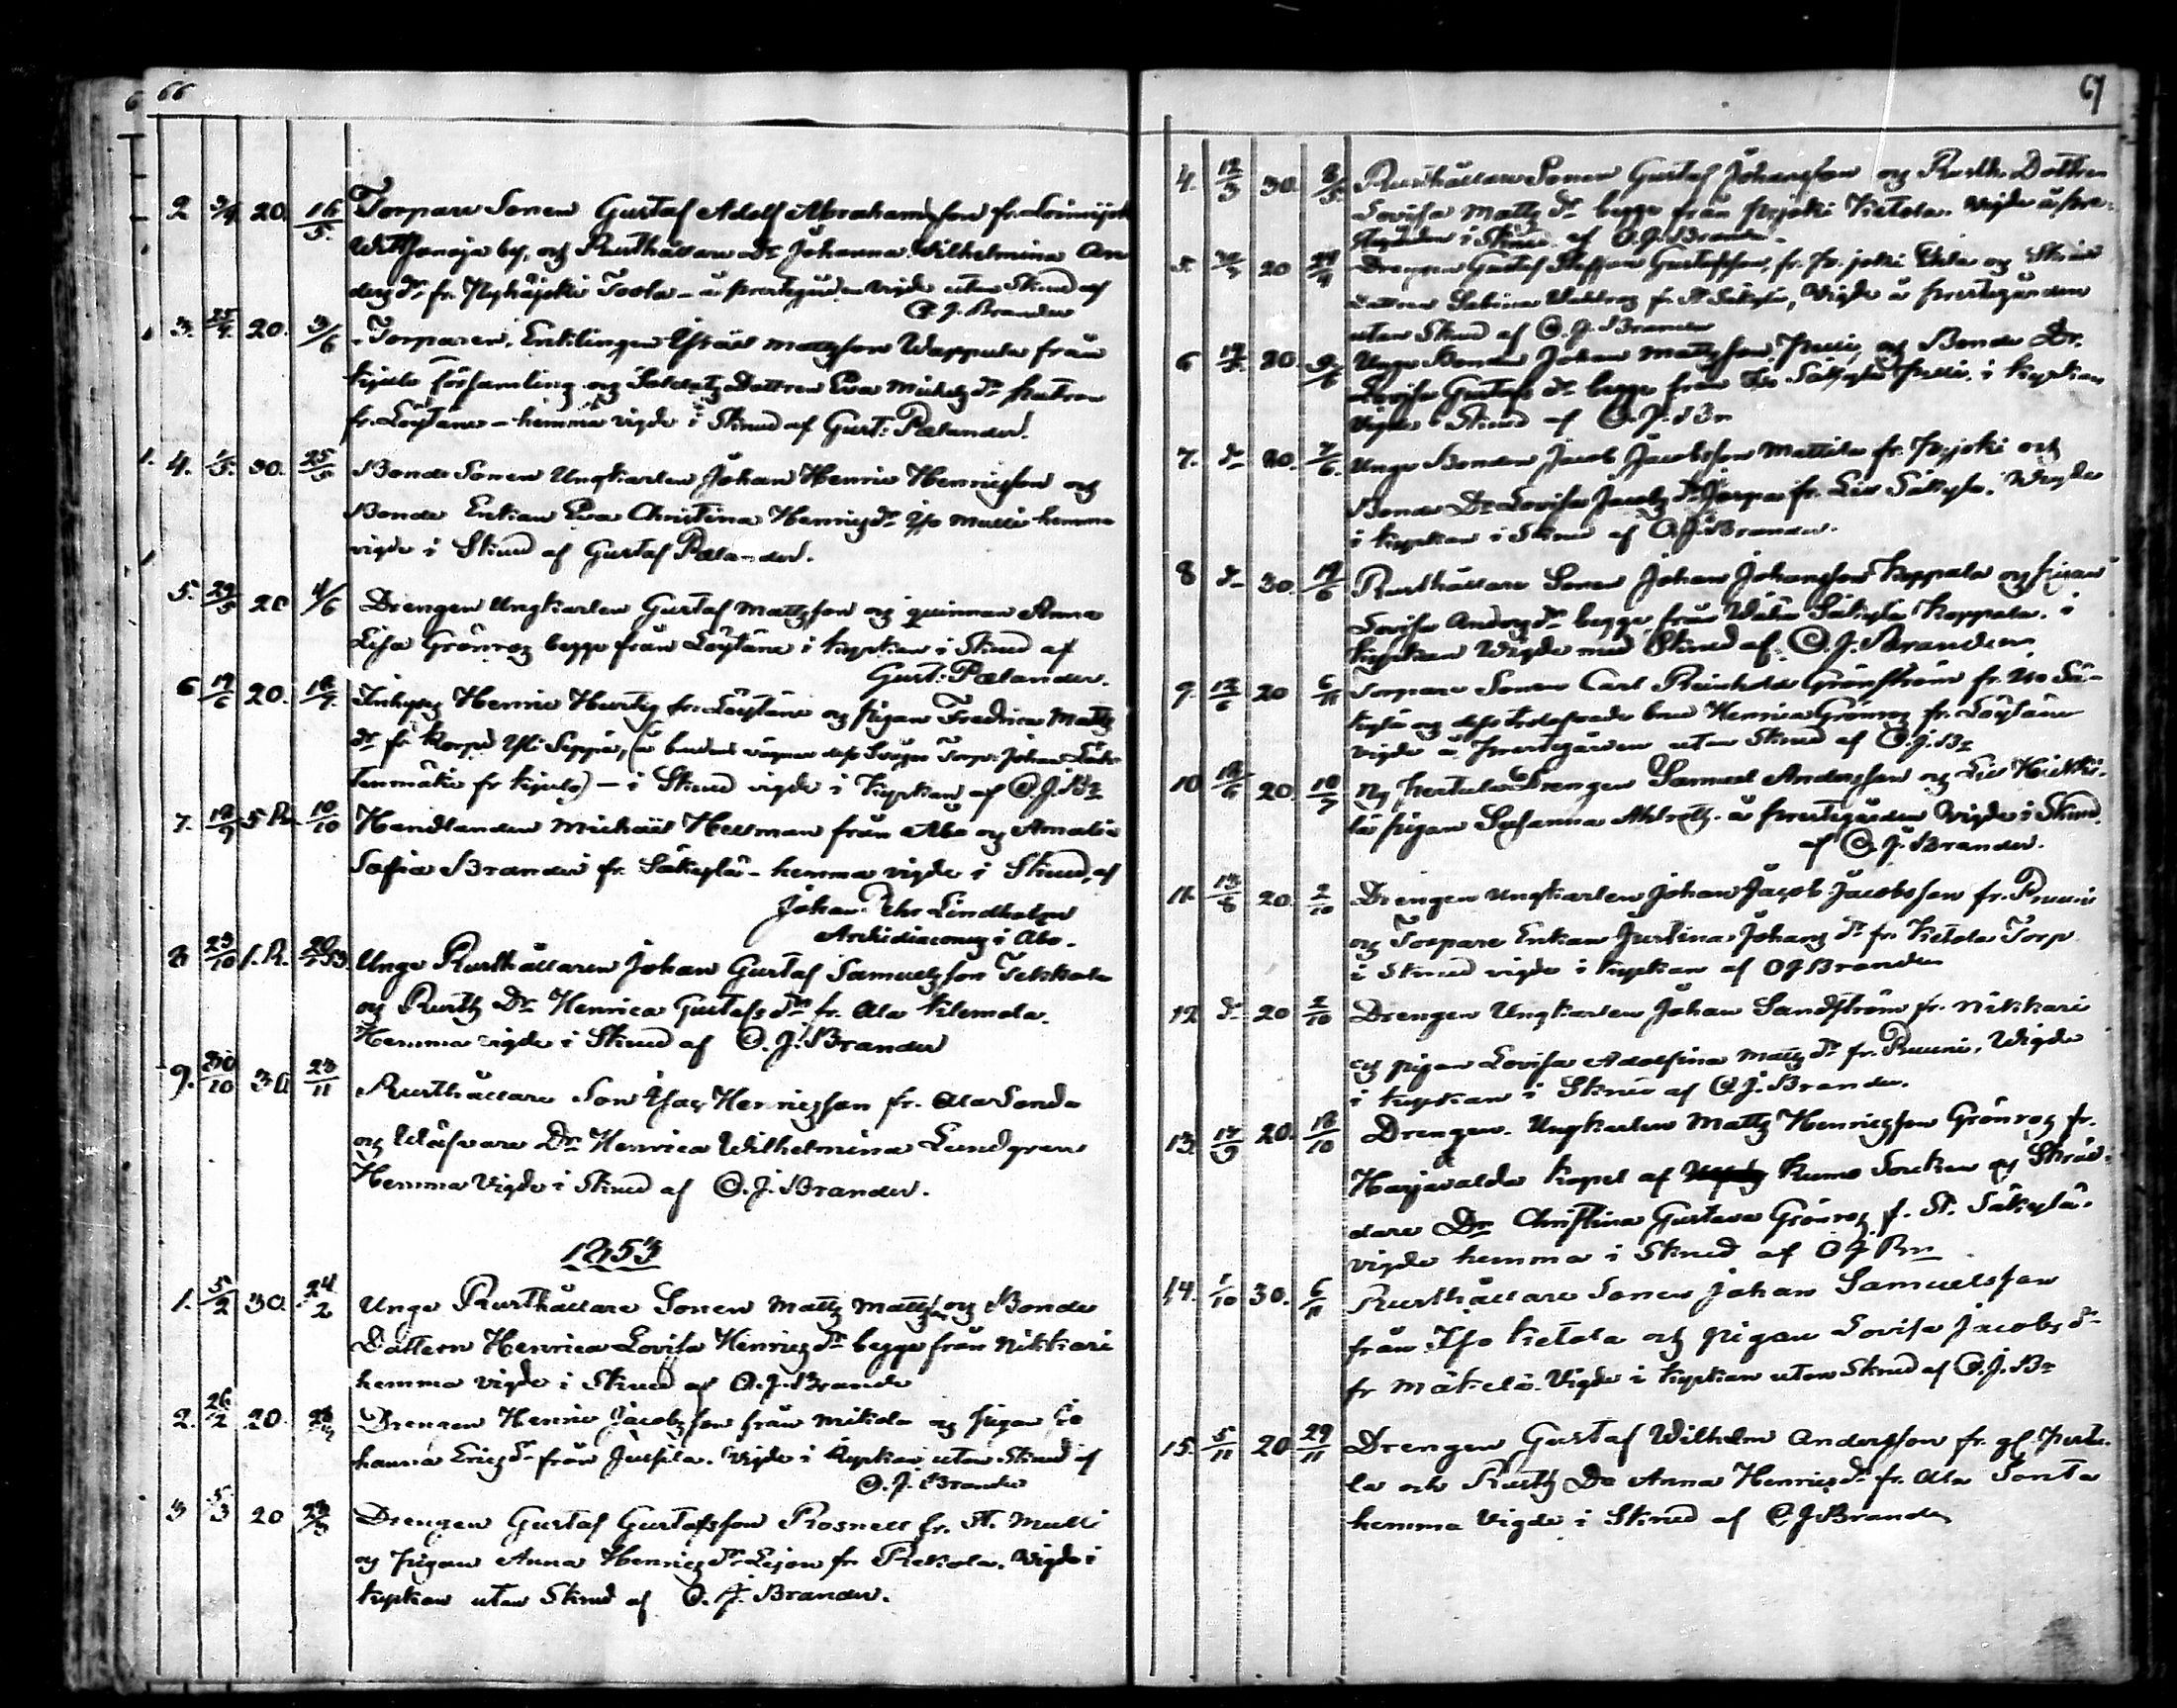 66
2 9/4 20. 16/5. Torpare Sonen Gustaf Adolf Abrahamsson fr. Loimijoki
by, och Rusthållare Dr Johanna Wilhelmina An
ders dr fr. Toola – å prestgården vigde utan Skrud af
O. J. Brander
3. 25/4. 20. 3/6 Torparen, Enklingen Israël Mattsson Wappula från
Kjulo församling och Soldats Dottren Eva Michels dr
fr. Löytäne – hemma vigde i Skrud af Gust: Palander.
4. 1/5. 30. 25/5 Bonde Sonen Ungkarlen Johan Henric Henricsson och
Bonde Enkan Eva Christina Henrics dr Iso Mulli hemma
vigde i Skrud af Gustaf Palander.
5. 29/5 20 4/6 Drengen Ungkarlen Gustaf Mattsson och quinnan Anna
Lisa Grönroos begge från Löytäne i kyrkan i Skrud af
Gust: Palander.
6 19/6 20. 18/7. Inhyses Henric Hurtig fr. Löytäne och pigan Fredrica Matts
dr fr. Korpi Yli Seppä, (å brudens vägnar dess Svåger Torp: Johan
fr Kjulo) – i Skrud vigde i Kyrkan af O. J. Br
7. 18/9 5 R. 10/10 Handlanden Michaël Hellman från Åbo och Amalia
Sofia Brander fr. Säkylä – hemma vigde i Skrud, af
Johan Lindholm
Archidiaconus i Åbo.
8 23/10 1.R. Unge Rusthållaren Johan Gustaf Samuelsson
och Rusth Dr Henrica Gustafs dr fr. Ala Klemola.
Hemma vigde i Skrud af O. J. Brander
9. 30/10 30 23/11 Rusthållare Son Isac Henricsson fr. Ala Sonda
och Dr Henrica Wilhelmina Lundgren
Hemma Vigde i Skrud af O. J. Brander.
1853
1. 5/2 30. 24/2 Unge Rusthållare Sonen Matts Mattsson och Bonde
Dottern Henrica Lovisa Henrics dr begge från Nikkari
hemma vigde i Skrud af O. J. Brander
2. 26/2 20. Drengen Henric Jacobsson från Mikola och pigan Jo
hanna Erics dr från Jussila. Vigde i Kyrkan utan Skrud af
O. J. Brander
3 5/3 20 Drengen Gustaf Gustafsson Rosnell fr. St. Mulli
och pigan Anna Henrics dr Lejon fr Rekola. Vigde i
kyrkan utan Skrud af O. J. Brander.
67
4. 12/3 30. 8/5. Rusthållare Sonen Gustaf Johansson och Rusth. Dottren
Lovisa Matts dr begge från Pyjoki Kietola. Vigde å pre-
stgården i Skrud af O. J. Brander.
5. 20 Drengen Gustaf Steffan Gustafsson, fr. och
Dottren Sabina fr. St. Säkylä, Vigde å prestegården
utan Skrud af O. J. Brander
6 20. Unge Bonden Johan Mattsson, och Bonde Dr.
Lovisa Gustafs dr begge från Säkylä i kyrkan
Vigde i Skrud af O. J. Br
7. do 20. 7/6. Unge Bonden Jacob Jacobsson Mattila fr. Pyjoki och
Bonde Dr Lovisa Jacobs dr fr. Säkylä. Vigde
i kyrkan i Skrud af O. J. Brander.
8 do 30. 19/6 Rusthållare Sonen Johan Johansson Keppola och pigan
Lovisa Anders dr begge från Wähä Säkylä Keppola. i
kyrkan Vigde med Skrud af O. J. Brander
9. 12/6 20 6/11 Torpare Sonen Carl Reinhold Grönström fr. Iso Sä-
kylä och dess trolofvade brud Henrica Grönroos fr. Löytäne
vigde å prestegården utan Skrud af O. J. Br
10 18/6 20. 10/7 Drengen Samuel Andersson och
pigan Susanna å prestegården Vigde i Skrud.
af O. J. Brander.
11. 13/8 20. 2/10 Drengen Ungkarlen Johan Jacob Jacobsson fr. Pruuni
och Torpare Enkan Justina Johans dr fr. Kietola Torp
i Skrud vigde i kyrkan af O J Brander
12 do 20 2/10 Drengen Ungkarlen Johan Sandström fr. Nikkari
och pigan Lovisa Adolfina Matts dr fr. Pruuni, Vigde
i kyrkan i Skrud af O. J. Brander.
13. 17/9 20. 18/10 Drengen Ungkarlen Matts Henricsson Grönroos fr.
Harjavalda Kapel af Kumo Socken och Skräd-
dare Dr Christina Gustava Grönroos f. St. Säkylä.
vigde hemma i Skrud af O J Br
14. 1/10 30. 6/11 Rusthållare Sonen Johan Samuelsson
från Iso Kietola och pigan Lovisa Jacobs dr
fr Mäkelä. Vigde i kyrkan utan Skrud af O. J. Br
15. 5/11 20 29/11 Drengen Gustaf Wilhelm Andersson fr.
la och Rusth Dr Anna Henrics dr fr. Ala Sonta
hemma Vigde i Skrud af O J Brander